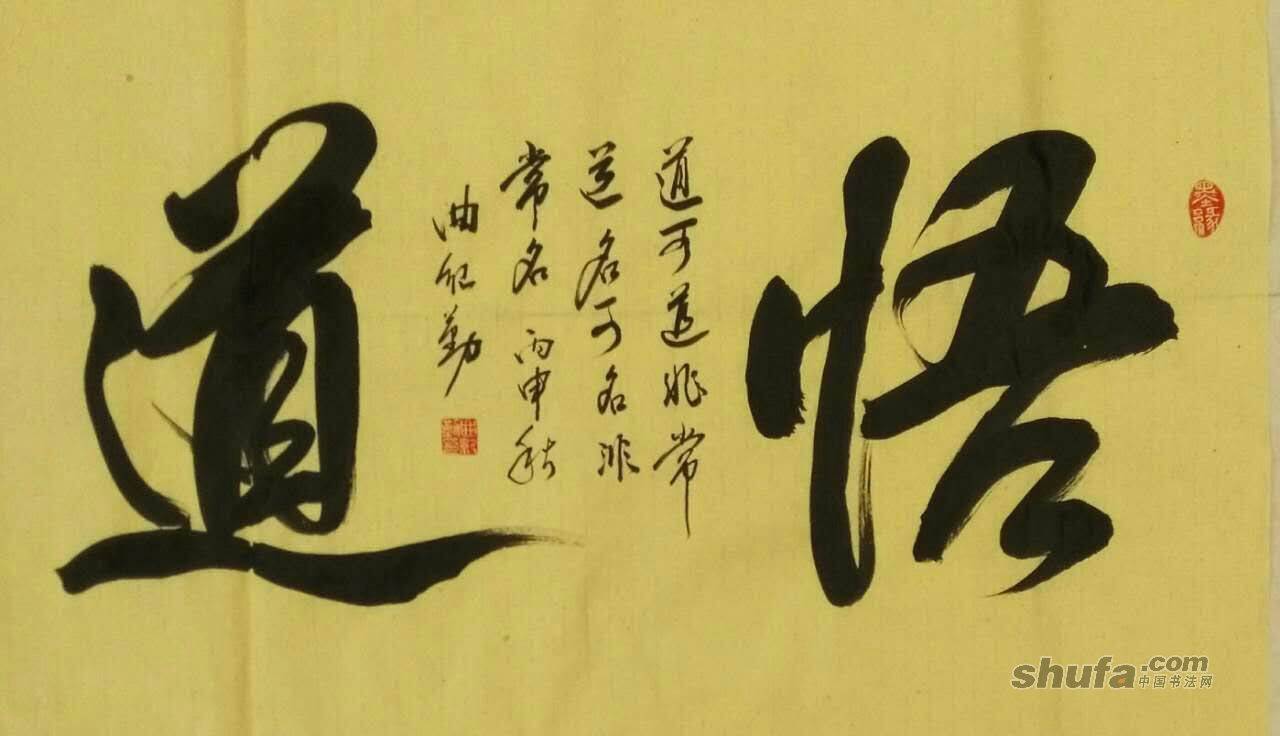 墨緣
悟
道可道非常
道名可名非
常名 丙申秋
曲 勤
道
shufa.com
中国书法网